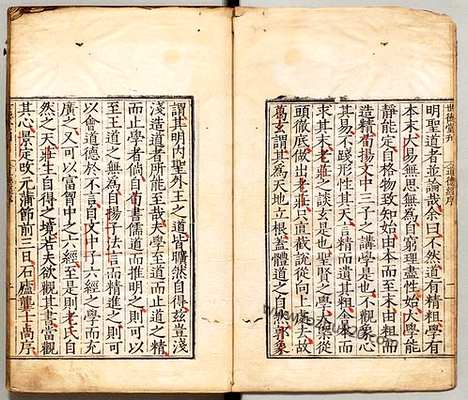 明聖道者並論哉余曰不然道有精粗學有
本末大易無思無為自窮理盡性始大學能
靜能定自格物致知始由本而至末由粗而
造精荀揚文中三子之講學是也不觀象心
其易不踐形性其天言精而遺其粗舍末而
求其本老莊之談玄是也聖賢之學大㮣從
頭徹底做出老莊只直截說從向上去故
為玄謂其為天地立根蓋體道之自然郭象
謂其明內聖外王之道皆曠然自得茲豈淺
淺造道者所能至哉夫學至道而止道之精
而止學者倘自荀書儒道而推明之則可以
至王道之無為自揚子法言而精進之則可
以會道德於不言自文中子六經之學而充
廣之又可以富胷中之六經至是則老氏自
然之天莊生自得之境若夫欲觀其書當觀
其心景定改元蒲節前三日石廬龔士卨序